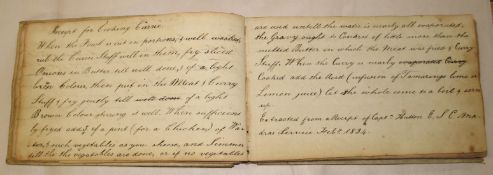 Receipt for Cooking Currie.
When the Meat is cut in portions, & well washed
rub the Currie Stuff well in them, fry sliced
Onions in Butter till well done, of a light
bron Colour, then put in the Meat & Curry
Stuff & fry gently till well done of a light
Brown Colour stiring it well. When sufficiently
fryed add of a pint (for a Chicken) of Wa-
ter, & such vegetables as you chuse, and Simmer
till the the vegetables are done, or if no vegetables
are used untill the water is nearly all evaporated,
the Gravy ought to Consist of little more than the
melted Butter in which the Meat was fried & Curry
Stuff. When the Curry is nearly evaporated Curry
Cooked add the Acid (infusion of Tamarinds Lime or
Lemon juice) let the whole come to a boil & serve
up.
Extracted from a Receipt of Capt. Hutton E. I. C. Ma-
dras Service Feby. 1824.